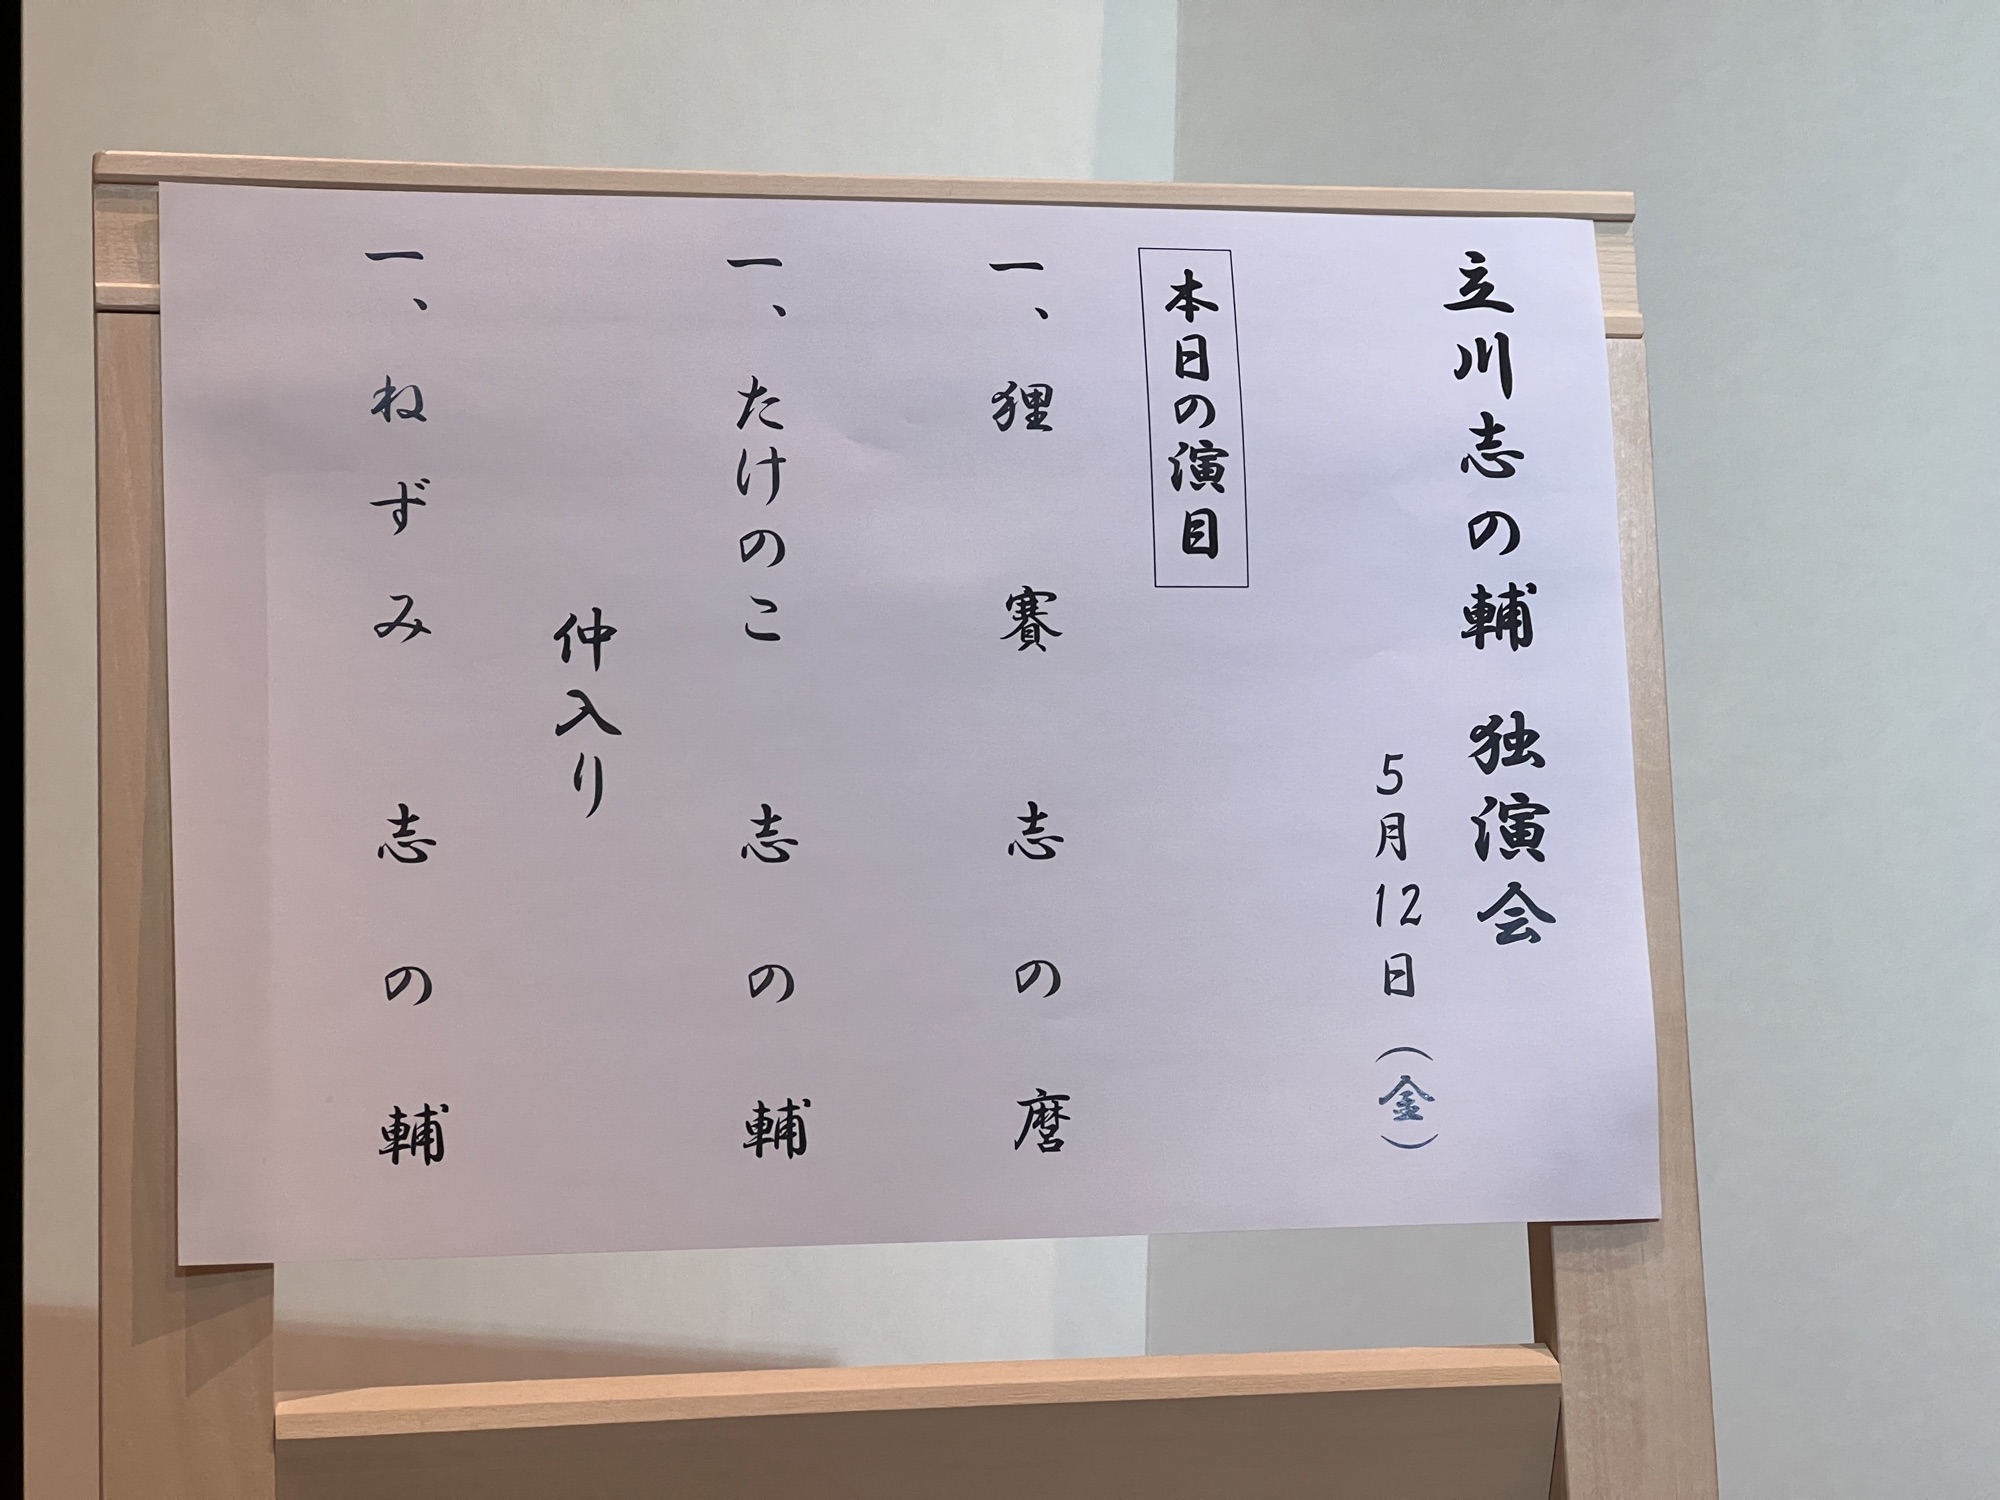 立川志の輔 独演会
5月12日（金）
本日の演目
一、狸 賽 志の麿
一、たけのこ 志の輔
仲入り
一、ねずみ 志の輔